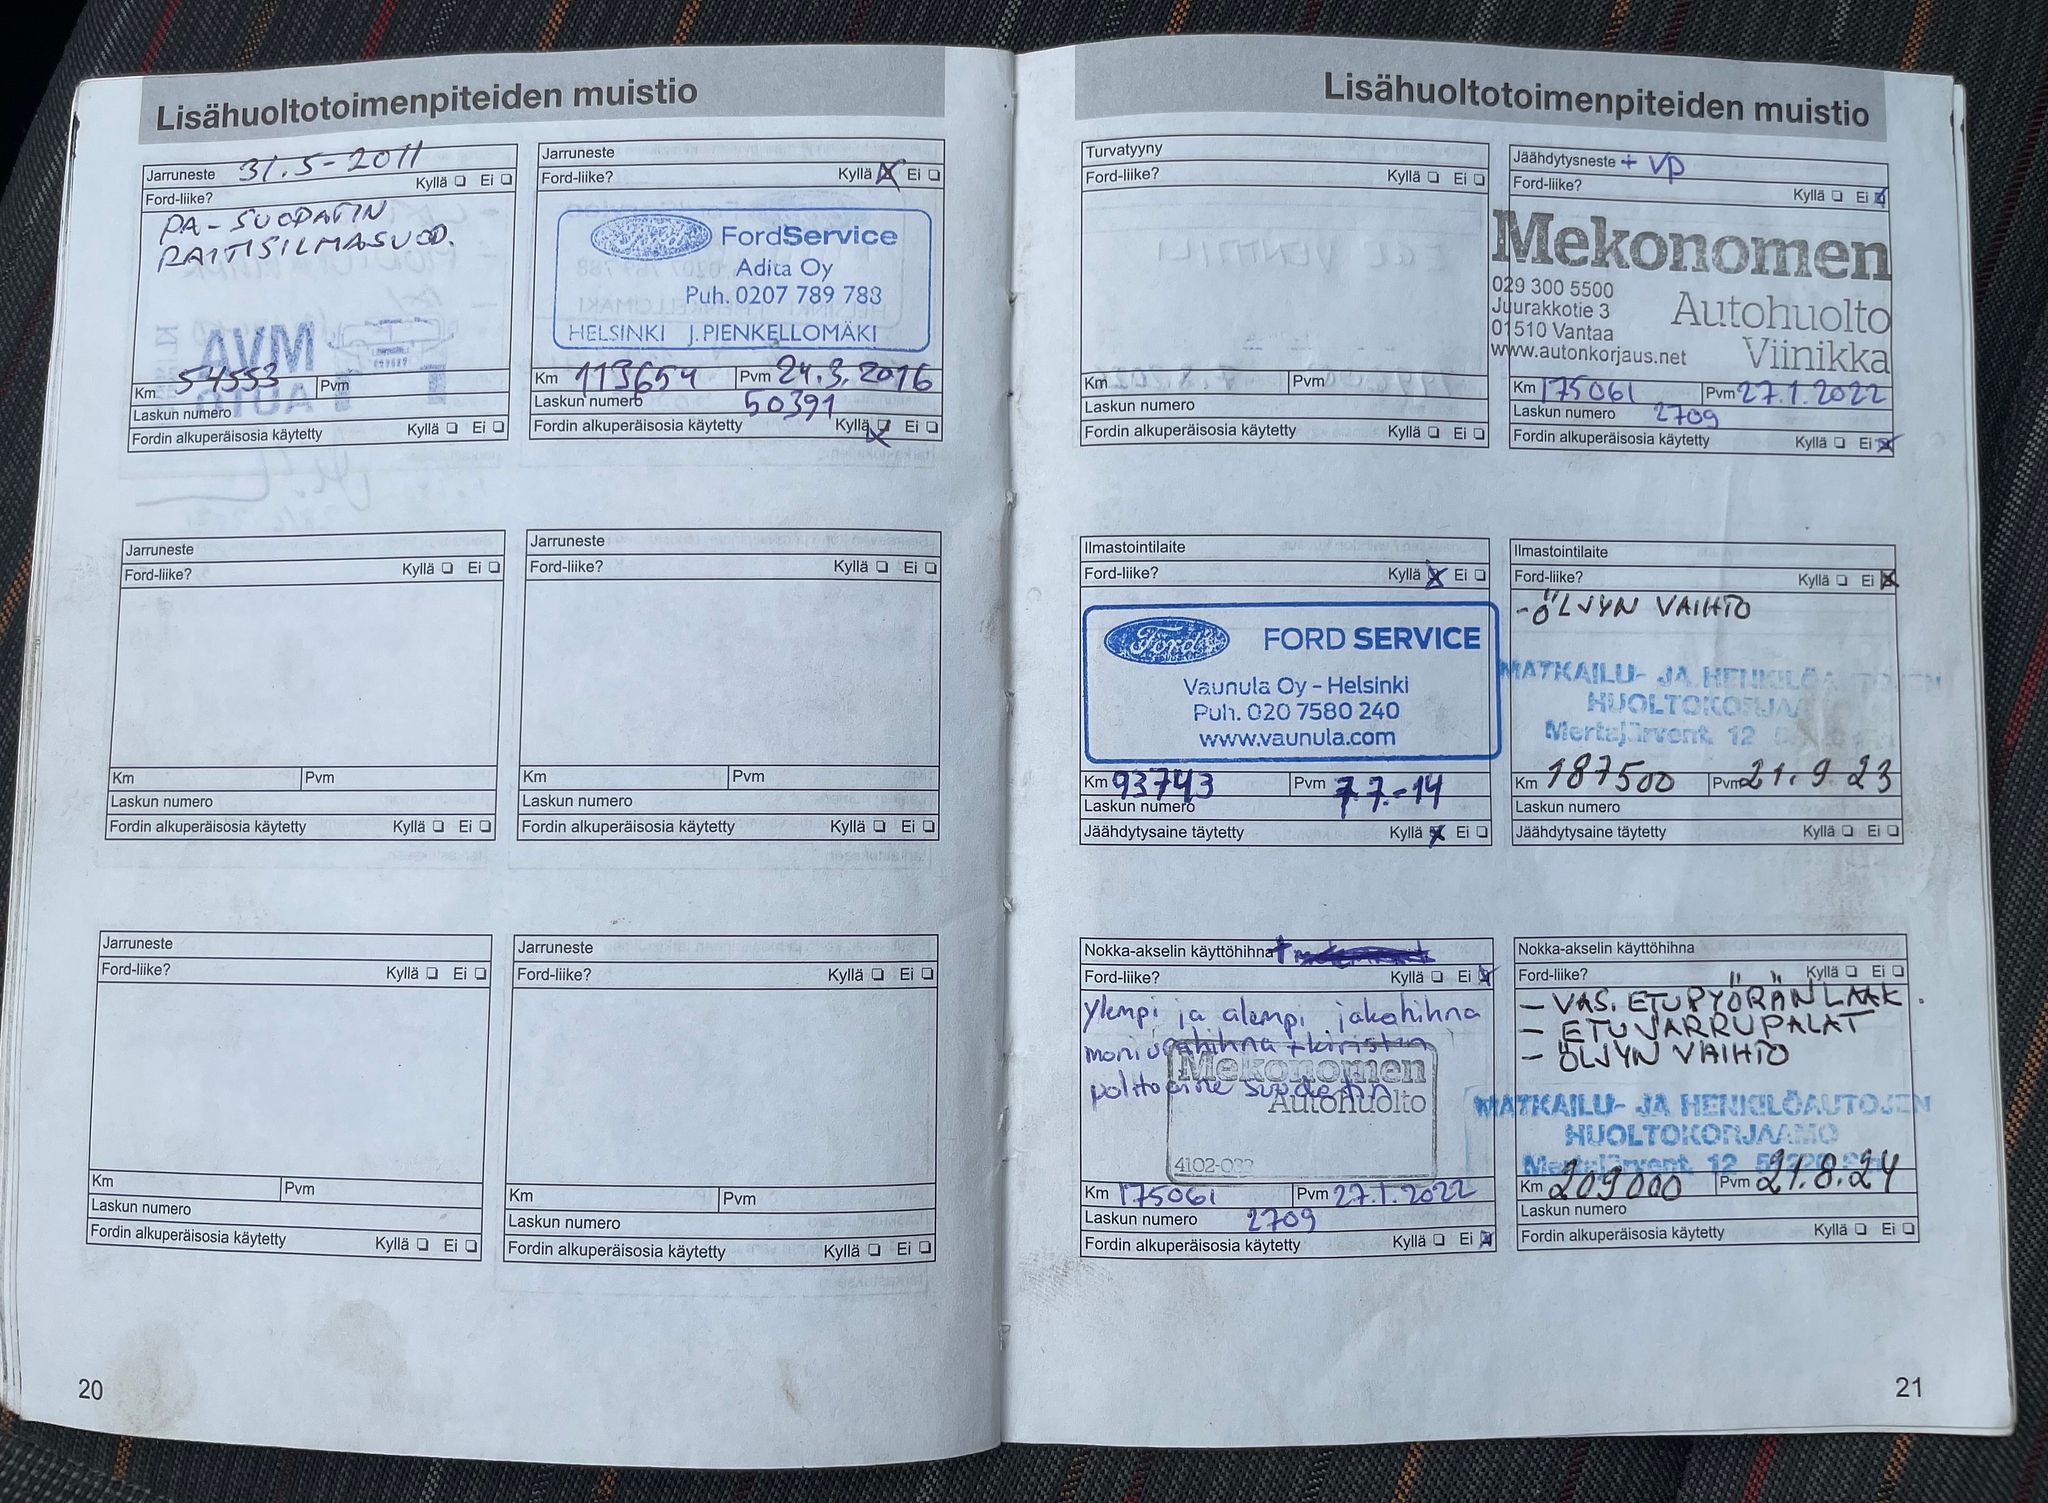 Lisähuoltotoimenpiteiden muistio
Jarruneste 31.5-2011
Kyllä ❏ Ei ❏
Ford-liike?
PA-SUODATIN
RAITISILMASUOD.
AVM
AUTO
Km 54553 Pvm
Laskun numero
Fordin alkuperäisosia käytetty Kyllä ❏ Ei ❏
Jarruneste
Ford-liike? Kyllä ☒ Ei ❏
FordService
Adita Oy
Puh. 0207 789 788
HELSINKI J.PIENKELLOMÄKI
Km 113654 Pvm 24.3.2016
Laskun numero 50391
Fordin alkuperäisosia käytetty Kyllä ☒ Ei ❏
Jarruneste
Ford-liike? Kyllä ❏ Ei ❏
Km Pvm
Laskun numero
Fordin alkuperäisosia käytetty Kyllä ❏ Ei ❏
Jarruneste
Ford-liike? Kyllä ❏ Ei ❏
Km Pvm
Laskun numero
Fordin alkuperäisosia käytetty Kyllä ❏ Ei ❏
Jarruneste
Ford-liike? Kyllä ❏ Ei ❏
Km Pvm
Laskun numero
Fordin alkuperäisosia käytetty Kyllä ❏ Ei ❏
Jarruneste
Ford-liike? Kyllä ❏ Ei ❏
Km Pvm
Laskun numero
Fordin alkuperäisosia käytetty Kyllä ❏ Ei ❏
20
Lisähuoltotoimenpiteiden muistio
Turvatyyny
Ford-liike? Kyllä ❏ Ei ❏
EGR VENTTIILI
Km Pvm
Laskun numero
Fordin alkuperäisosia käytetty Kyllä ❏ Ei ❏
Jäähdytysneste + VP
Ford-liike?
Kyllä ❏ Ei ☒
Mekonomen
029 300 5500
Juurakkotie 3
01510 Vantaa
www.autonkorjaus.net
Autohuolto
Viinikka
Km 175061 Pvm 27.1.2022
Laskun numero 2709
Fordin alkuperäisosia käytetty Kyllä ❏ Ei ☒
Ilmastointilaite
Ford-liike? Kyllä ☒ Ei ❏
Ford
FORD SERVICE
Vaunula Oy – Helsinki
Puh. 020 7580 240
www.vaunula.com
Km 93743 Pvm 7.7.-14
Laskun numero
Jäähdytysaine täytetty Kyllä ☒ Ei ❏
Ilmastointilaite
Ford-liike? Kyllä ❏ Ei ☒
-ÖLJYN VAIHTO
MATKAILU- JA
HUOLTOKORJAA
Mertajärvent. 12
Km 187500 Pvm 21.9.23
Laskun numero
Jäähdytysaine täytetty Kyllä ❏ Ei ❏
Nokka-akselin käyttöhihna +
Ford-liike? Kyllä ❏ Ei ☒
ylempi ja alempi jakohihna
moniurahihna + kiristin
polttoaine suodatin
Mekonomen
Autohuolto
4102-033
Km 175061 Pvm 27.1.2022
Laskun numero 2709
Fordin alkuperäisosia käytetty Kyllä ❏ Ei ☒
Nokka-akselin käyttöhihna
Ford-liike? Kyllä ❏ Ei ❏
- VAS. ETUPYÖRÄN LAAK.
- ETUVARRUPALAT
- ÖLJYN VAIHTO
MATKAILU- JA HENKILÖAUTOJEN
HUOLTOKORJAAMO
Mertajärvent. 12
Km 209000 Pvm 21.8.24
Laskun numero
Fordin alkuperäisosia käytetty Kyllä ❏ Ei ❏
21